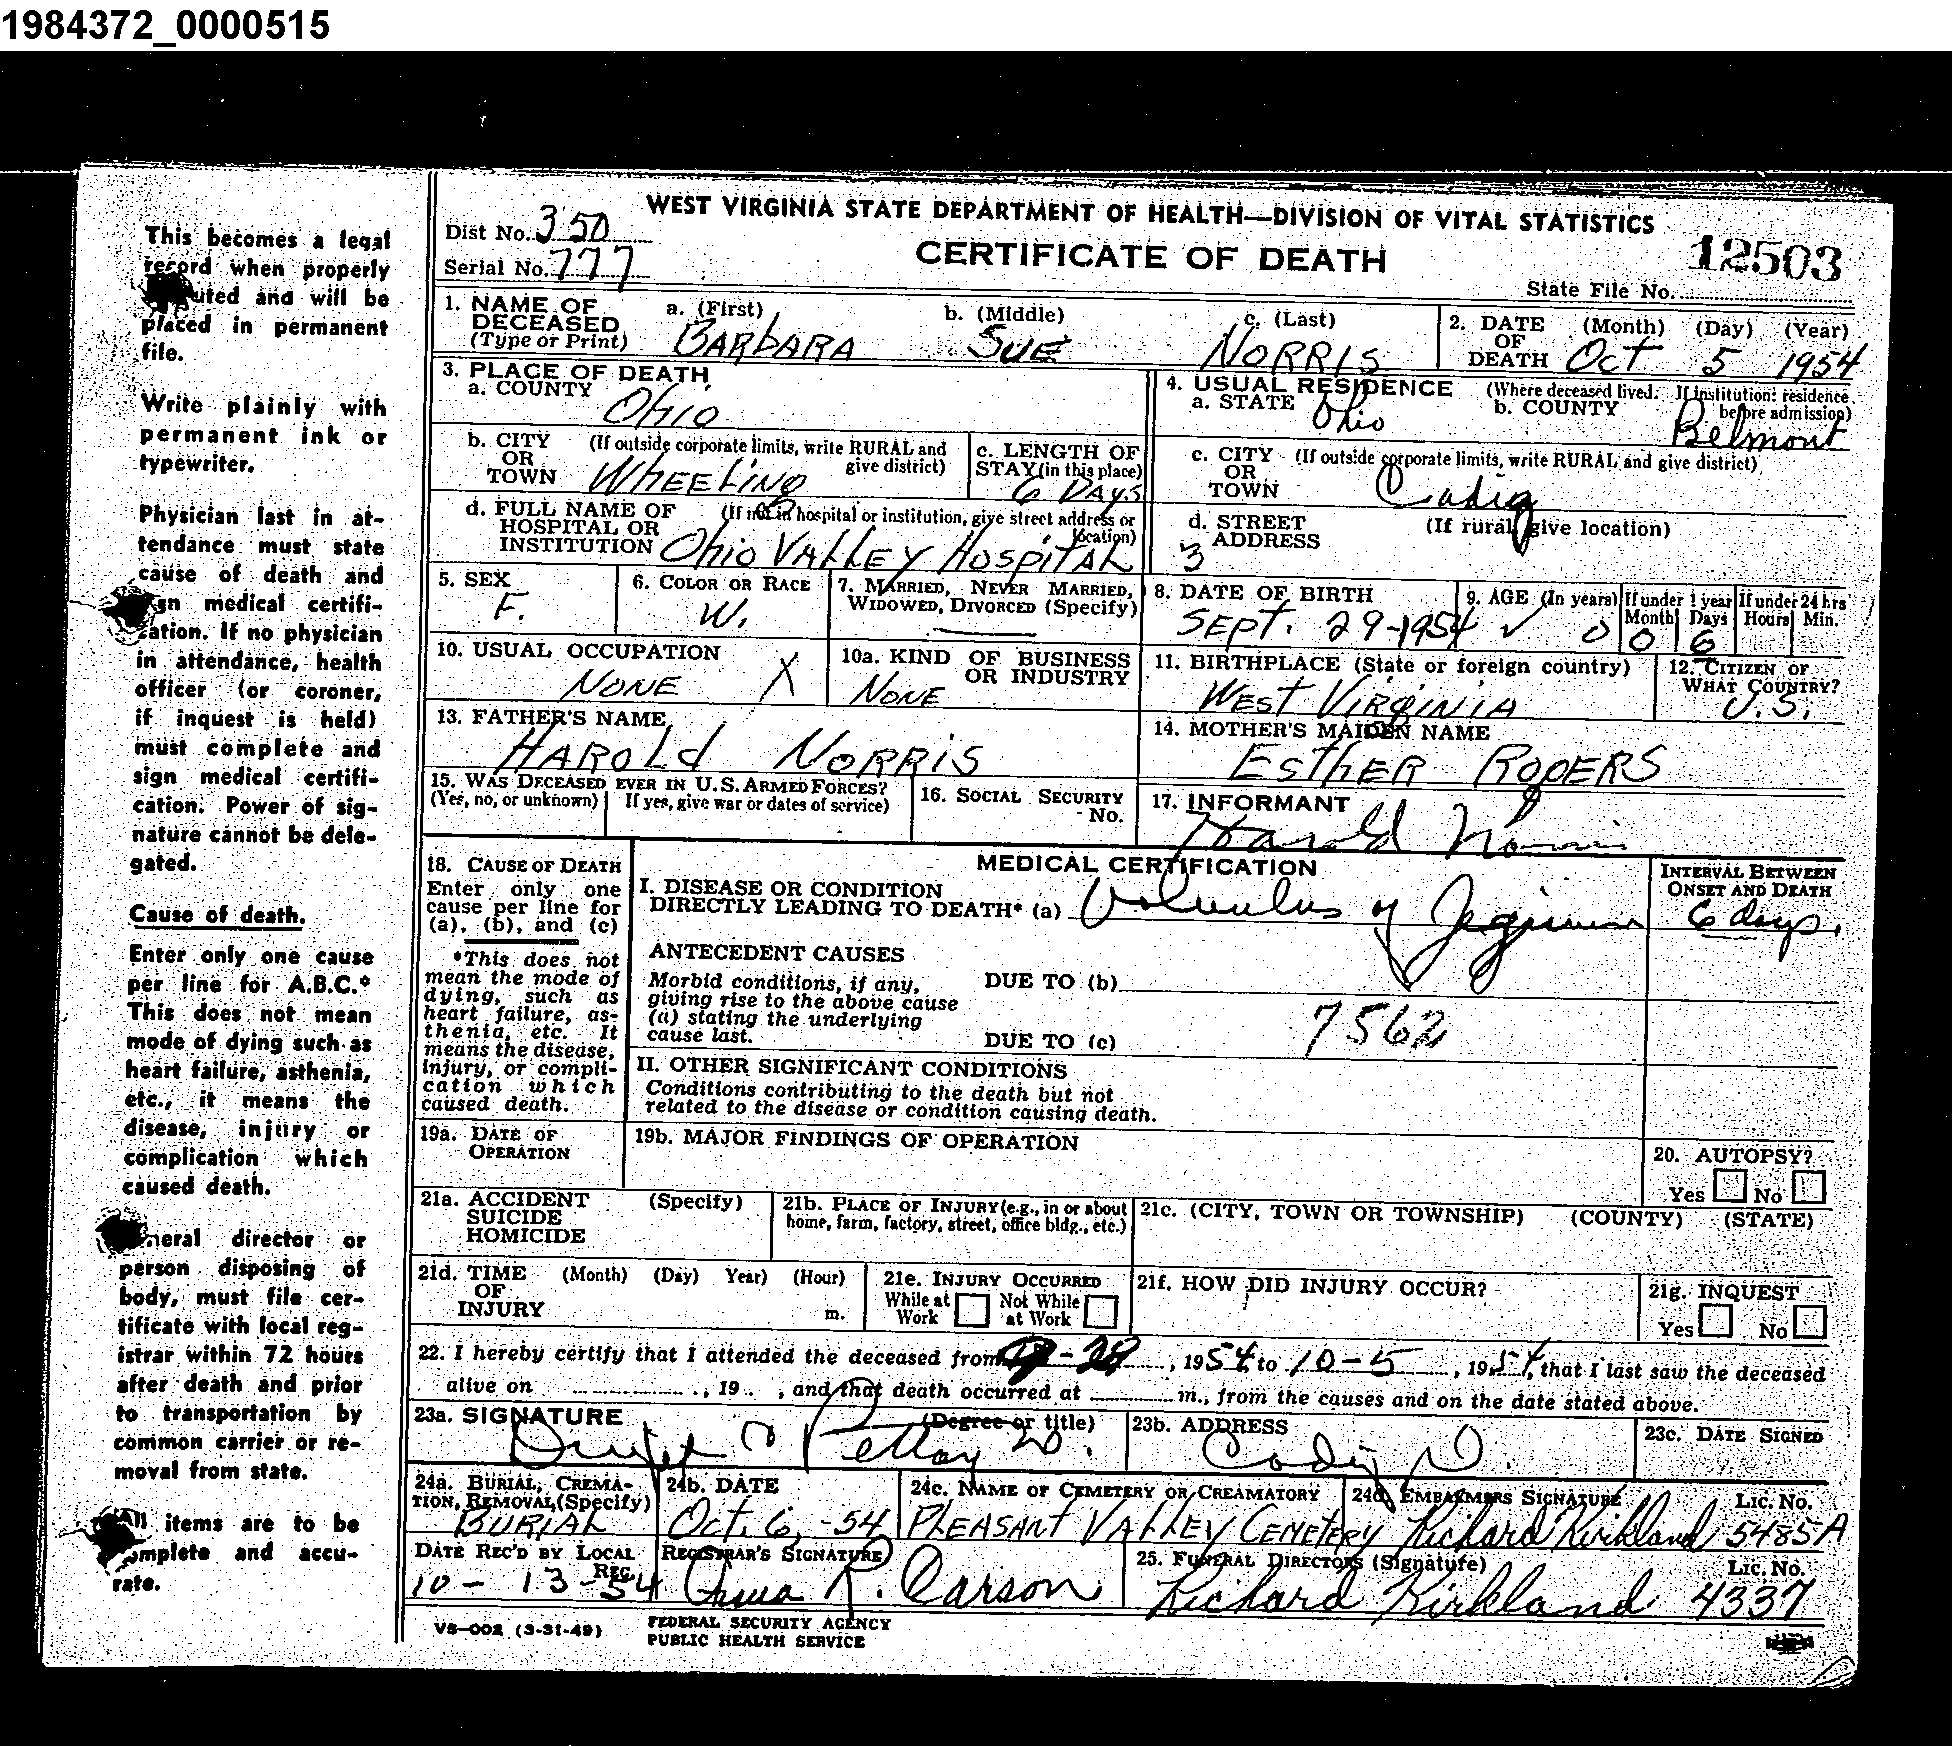 1984372_0000515
This becomes a legal
record when properly
uted and will be
placed in permanent
file.
Write plainly with
permanent ink or
typewriter.
Physician last in at-
tendance must state
cause of death and
gn medical certifi-
cation. If no physician
in attendance, health
officer (or coroner,
if inquest is held)
must complete and
sign medical certifi-
cation. Power of sig-
nature cannot be dele-
gated.
Cause of death.
Enter only one cause
per line for A.B.C.*
This does not mean
mode of dying such as
heart failure, asthenia,
etc., it means the
disease, injury or
complication which
caused death.
neral director or
person disposing of
body, must file cer-
tificate with local reg-
istrar within 72 hours
after death and prior
to transportation by
common carrier or re-
moval from state.
All items are to be
omplete and accu-
rate.
WEST VIRGINIA STATE DEPARTMENT OF HEALTH—DIVISION OF VITAL STATISTICS
Dist No. 350
Serial No. 777
CERTIFICATE OF DEATH
12503
State File No.
1. NAME OF DECEASED (Type or Print) a. (First) BARBARA b. (Middle) SUE c. (Last) NORRIS
2. DATE OF DEATH (Month) (Day) (Year) Oct 5 1954
3. PLACE OF DEATH
a. COUNTY Ohio
4. USUAL RESIDENCE (Where deceased lived. If institution: residence before admission)
a. STATE Ohio b. COUNTY Belmont
b. CITY OR TOWN (If outside corporate limits, write RURAL and give district) WHEELING
c. LENGTH OF STAY (in this place) 6 DAYS
c. CITY OR TOWN (If outside corporate limits, write RURAL and give district) Cadiz
d. FULL NAME OF HOSPITAL OR INSTITUTION (If not in hospital or institution, give street address or location) Ohio VALLEY HOSPITAL
d. STREET ADDRESS (If rural, give location) 3
5. SEX F.
6. COLOR OR RACE W.
7. MARRIED, NEVER MARRIED, WIDOWED, DIVORCED (Specify)
8. DATE OF BIRTH SEPT. 29-1954
9. AGE (In years) 0 If under 1 year Month 0 Days 6 If under 24 hrs Hours Min.
10. USUAL OCCUPATION NONE X
10a. KIND OF BUSINESS OR INDUSTRY NONE
11. BIRTHPLACE (State or foreign country) WEST VIRGINIA
12. CITIZEN OF WHAT COUNTRY? U.S.
13. FATHER'S NAME HAROLD NORRIS
14. MOTHER'S MAIDEN NAME ESTHER ROGERS
15. WAS DECEASED EVER IN U.S. ARMED FORCES? (Yes, no, or unknown) If yes, give war or dates of service)
16. SOCIAL SECURITY No.
17. INFORMANT Harold Norris
18. CAUSE OF DEATH
Enter only one
cause per line for
(a), (b), and (c)
*This does not
mean the mode of
dying, such as
heart failure, as-
thenia, etc. It
means the disease,
injury, or compli-
cation which
caused death.
MEDICAL CERTIFICATION
INTERVAL BETWEEN ONSET AND DEATH
I. DISEASE OR CONDITION
DIRECTLY LEADING TO DEATH* (a) Volvulus of 6 days.
ANTECEDENT CAUSES
Morbid conditions, if any,
giving rise to the above cause
(a) stating the underlying
cause last.
DUE TO (b)
DUE TO (c) 7562
II. OTHER SIGNIFICANT CONDITIONS
Conditions contributing to the death but not
related to the disease or condition causing death.
19a. DATE OF OPERATION
19b. MAJOR FINDINGS OF OPERATION
20. AUTOPSY? Yes No
21a. ACCIDENT SUICIDE HOMICIDE (Specify)
21b. PLACE OF INJURY (e.g., in or about home, farm, factory, street, office bldg., etc.)
21c. (CITY, TOWN OR TOWNSHIP) (COUNTY) (STATE)
21d. TIME OF INJURY (Month) (Day) Year) (Hour) m.
21e. INJURY OCCURRED While at Work Not While at Work
21f. HOW DID INJURY OCCUR?
21g. INQUEST Yes No
22. I hereby certify that I attended the deceased from , 1954 to 10-5, 1954, that I last saw the deceased
alive on , 19 , and that death occurred at m., from the causes and on the date stated above.
23a. SIGNATURE (Degree or title)
23b. ADDRESS Cadiz O.
23c. DATE SIGNED
24a. BURIAL, CREMATION, REMOVAL (Specify) BURIAL
24b. DATE Oct. 6, -54
24c. NAME OF CEMETERY OR CREAMATORY PLEASANT VALLEY CEMETERY
24d. EMBALMERS SIGNATURE Richard Kirkland Lic. No. 5485A
DATE REC'D BY LOCAL REG. 10-13-54
REGISTRAR'S SIGNATURE R. Carson
25. FUNERAL DIRECTORS (Signature) Richard Kirkland Lic. No. 4337
VS—002 (3-31-49)
FEDERAL SECURITY AGENCY
PUBLIC HEALTH SERVICE